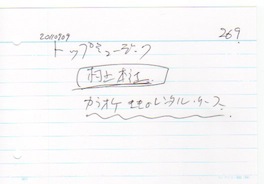 20110909
269
トップミュージック
村上本社
カラオケ レンタル・リース